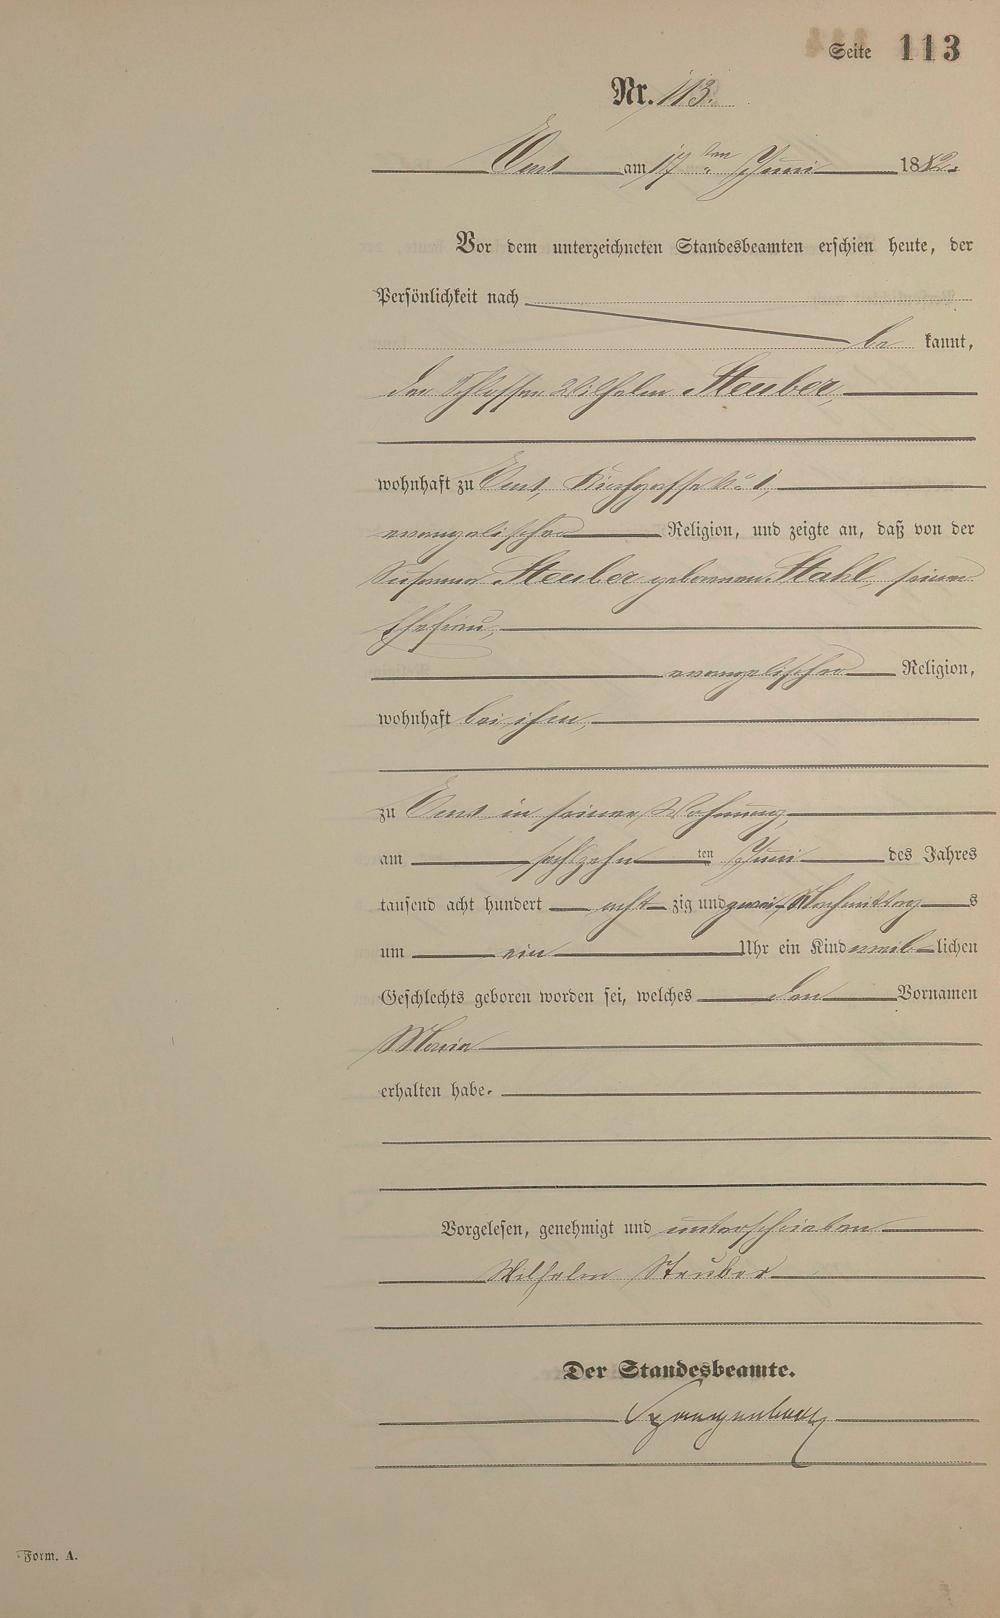 Seite 113
Nr. 113.
Ems am 17ten Juni 1882.
Vor dem unterzeichneten Standesbeamten erschien heute, der
Persönlichkeit nach
be kannt,
der Schlosser Wilhelm Steuber,
wohnhaft zu Ems, Kirchgasse No 1,
evangelischer Religion, und zeigte an, daß von der
Susanna Steuber geborenen Stahl, seiner
Ehefrau,
evangelischer Religion,
wohnhaft bei ihm,
zu Ems in seiner Wohnung,
am sechszehn ten Juni des Jahres
tausend acht hundert acht zig und zwei Nachmittag s
um ein Uhr ein Kind weib lichen
Geschlechts geboren worden sei, welches den Vornamen
Maria
erhalten habe.
Vorgelesen, genehmigt und unterschrieben
Wilhelm Steuber
Der Standesbeamte.
Form. A.